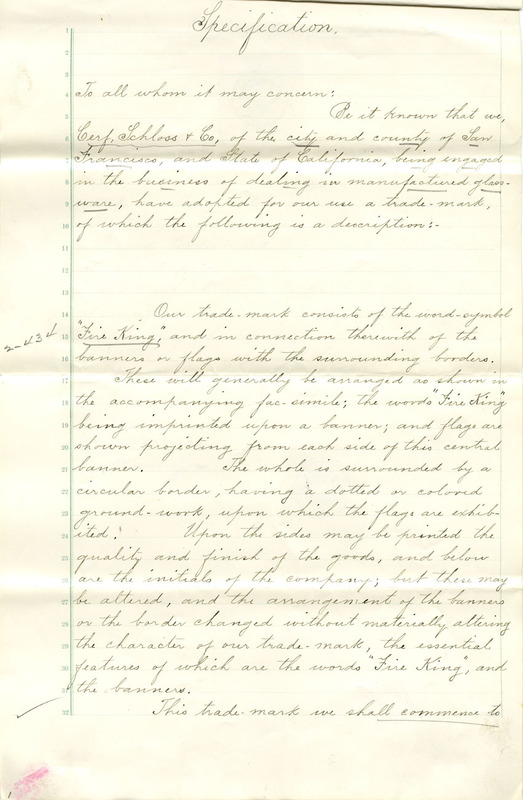 Specification.
To all whom it may concern:
Be it known that we,
Cerf, Schloss & Co, of the city and county of San
Francisco, and State of California, being engaged
in the business of dealing in manufactured glass-
ware, have adopted for our use a trade-mark,
of which the following is a description:-
Our trade-mark consists of the word-symbol
2-434
"Fire King", and in connection therewith of the
banners or flags with the surrounding borders.
These will generally be arranged as shown in
the accompanying fac-simile; the words "Fire King"
being imprinted upon a banner; and flags are
shown projecting from each side of this central
banner. The whole is surrounded by a
circular border, having a dotted or colored
ground-work, upon which the flags are exhib-
ited. Upon the sides may be printed the
quality and finish of the goods, and below
are the initials of the company; but these may
be altered, and the arrangement of the banners
or the border changed without materially altering
the character of our trade-mark, the essential
features of which are the words "Fire King", and
the banners.
This trade-mark we shall commence to